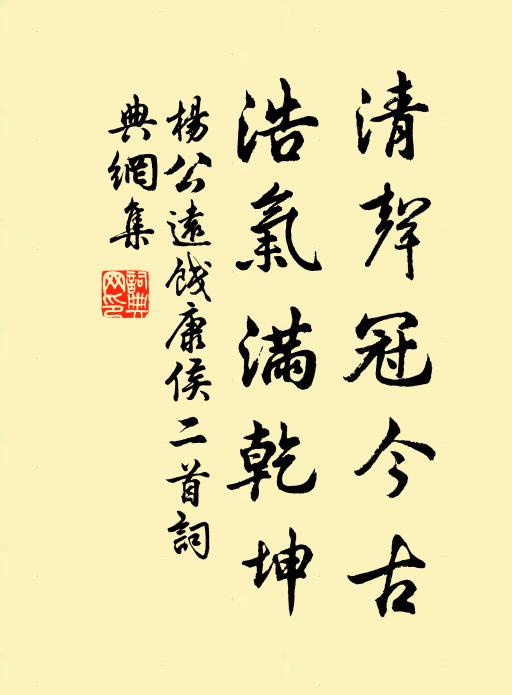 清聲冠今古
浩氣滿乾坤
楊公遠餞康侯二首詞
典網集
詞典網印